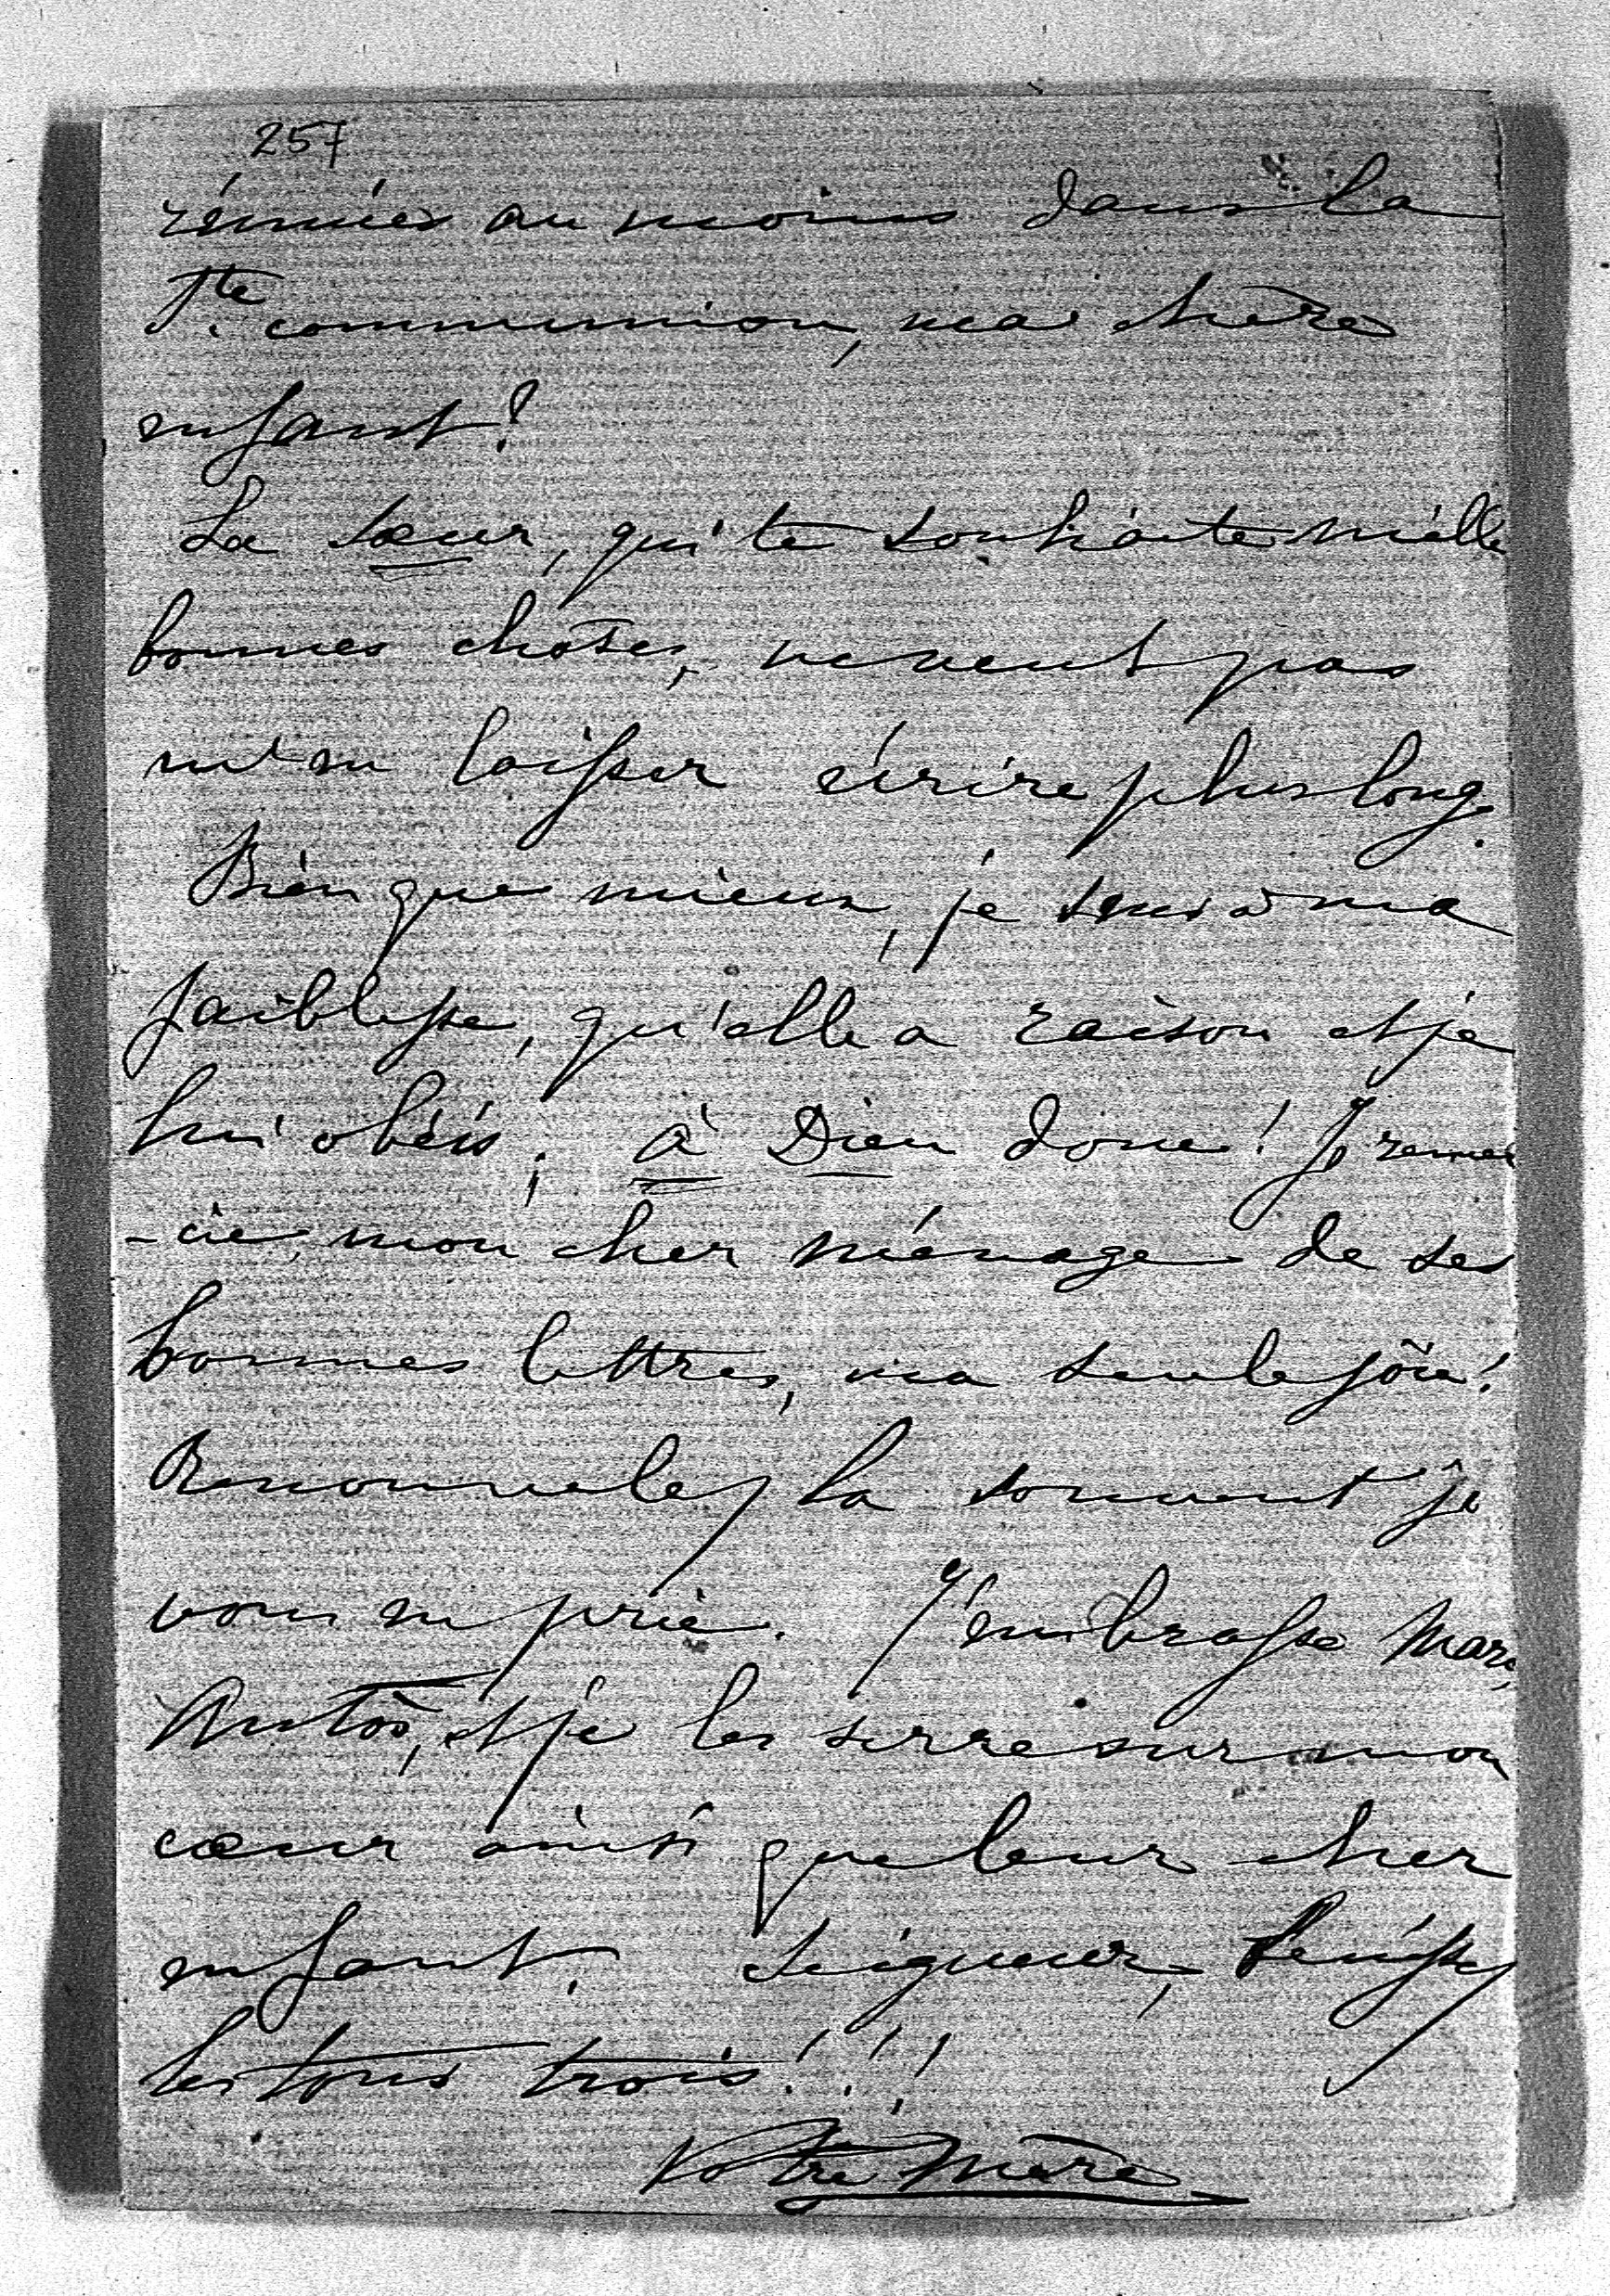 257
réunies au moins dans la
Ste communion, ma chère
enfant!
La sœur, qui te souhaite mille
bonnes choses, ne veut pas
m'en laisser écrire plus long.
Bien que mieux, je sens à ma
faiblesse, qu'elle a raison et je
lui obéis; à Dieu donc! Je remer
-cie, mon cher ménage de ses
bonnes lettres, ma seule joie!
Renouvelez la souvent je
vous en prie. J'embrasse Marc,
Antoi, et je les serre sur mon
cœur ainsi que leur cher
enfant. Seigneur, bénissez
les tous trois!!!
Votre Mère